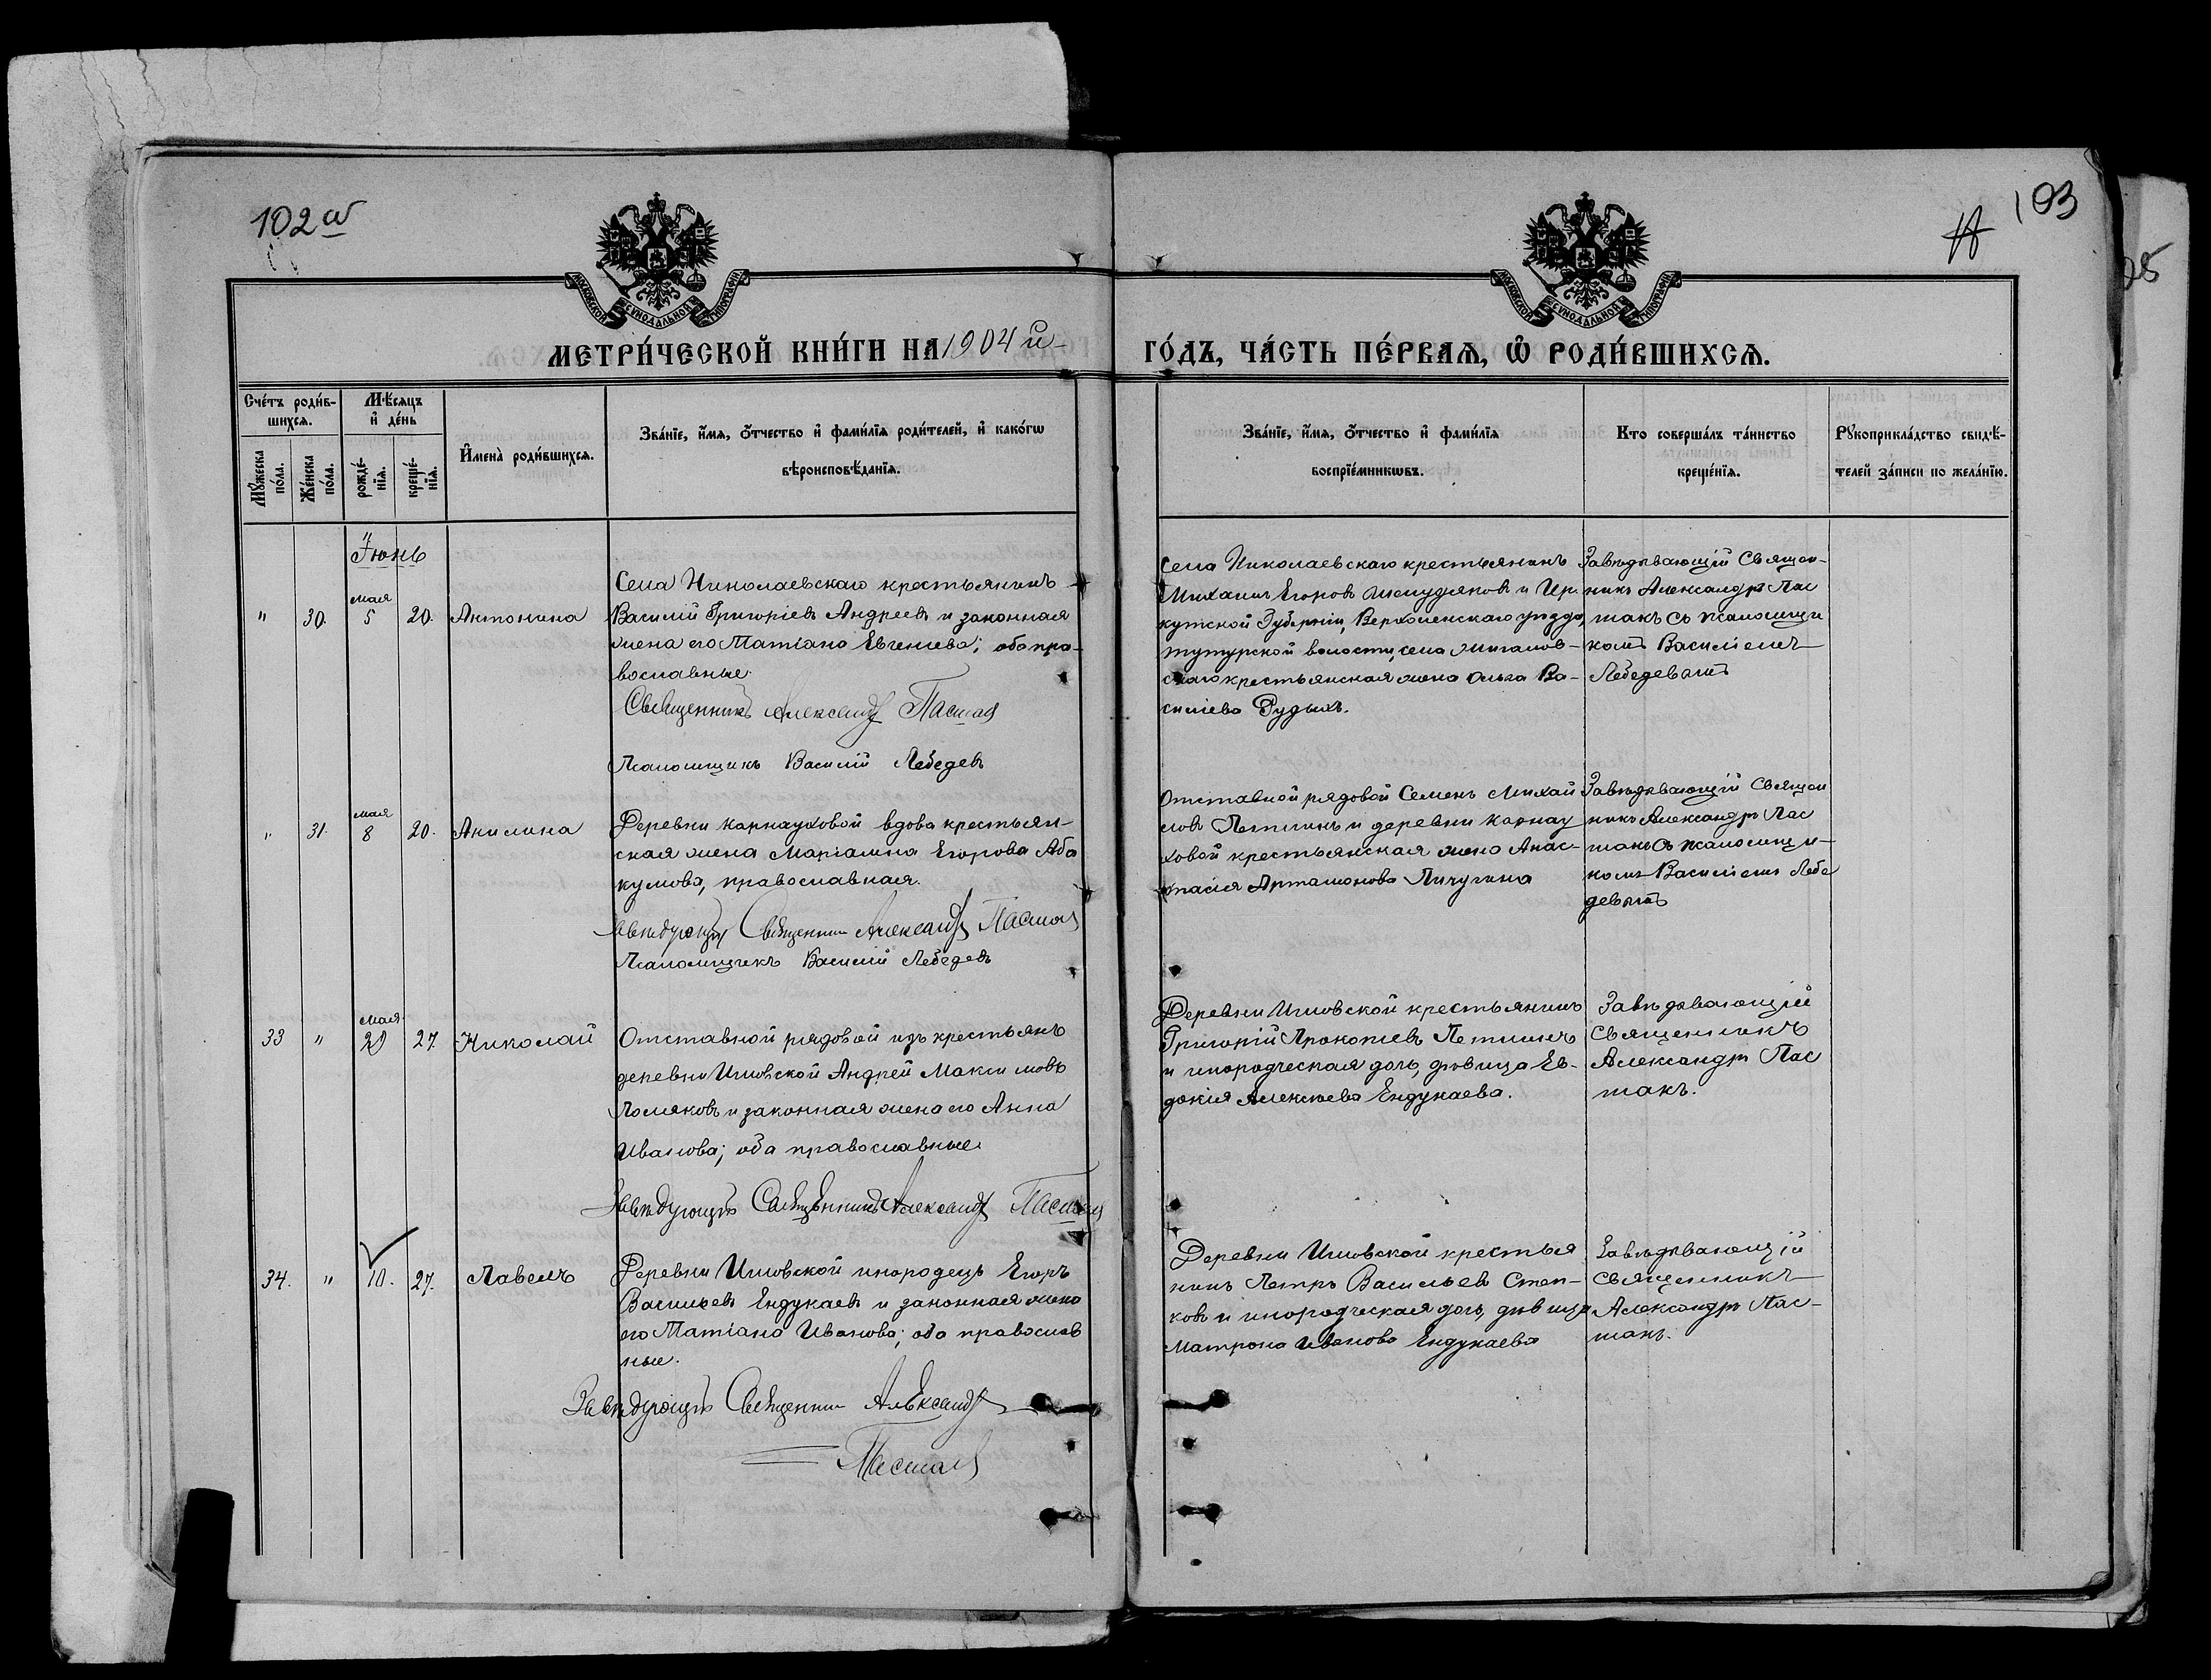 102 об
103
МОСКОВСКОЙ СѴНОДАЛЬНОЙ ТИПОГРАФІИ
МОСКОВСКОЙ СѴНОДАЛЬНОЙ ТИПОГРАФІИ
МЕТРИ́ЧЕСКОЙ КНИ́ГИ НА 1904 й
ГО́ДЪ, ЧА́СТЬ ПЕ́РВАѦ, Ѡ РОДИ́ВШИХСѦ.
Сче́тъ роди́в-
шихсѧ.
Мꙋ́жеска
по́ла.
Же́нска
по́ла.
Мѣ́сѧцъ
и҆ де́нь
рожде́-
нїѧ.
креще́-
нїѧ.
И҆мена̀ роди́вшихсѧ.
Зва́нїе, и҆́мѧ, ѻ҆́тчество и҆ фами́лїѧ роди́телей, и҆ како́гѡ
вѣроисповѣ́данїѧ.
Зва́нїе, и҆́мѧ, ѻ҆́тчество и҆ фами́лїѧ
воспрїе́мникѡвъ.
Кто̀ соверша́лъ та́инство
креще́нїѧ.
Рꙋкоприкла́дство свидѣ́-
телей за́писи по жела́нїю.
Іюнь
"
30.
мая
5
20.
Антонина
Села Николаевскаго крестьянинъ
Василій Григоріевъ Андреевъ и законная
жена его Татіана Евгеніева; оба пра-
вославные.
Священникъ Александръ Пастакъ
Псаломщикъ Василій Лебедевъ
Села Николаевскаго крестьянинъ
Михаилъ Егоровъ и Ир-
кутской Губерніи, Верхоленскаго уѣзда,
тутурской волости, села
скаго крестьянская жена Ольга Ва-
силіева Рудыхъ.
Завѣдывающій Священ-
никъ Александръ Пас
такъ съ псаломщи
комъ Василіемъ
Лебедевымъ
"
31.
мая
8
20.
Акилина
Деревни Карнауховой вдова крестьян-
ская жена Маріамна Егорова Аба
кумова, православная.
Завѣдующій Священникъ Александръ Пастакъ
Псаломщикъ Василій Лебедевъ
Отставной рядовой Семенъ Михай
ловъ и деревни Карнау
ховой крестьянская жена Анас-
тасія Артамонова Пичугина
Завѣдывающій Священ
никъ Александръ Пас
такъ съ псаломщи-
комъ Василіемъ Лебе
девымъ
33
"
Мая
29
27.
Николай
Отставной рядовой изъ крестьянъ
деревни Илловской Андрей Максимовъ
Поляковъ и законная жена его Анна
Иванова; оба православные.
Завѣдующій Священникъ Александръ Пастакъ
Деревни Илловской крестьянинъ
Григорій Прокопіевъ
и инородческая дочь, дѣвица Ев-
докія Алексѣева Ендукаева.
Завѣдывающій
Священникъ
Александръ Пас
такъ.
34.
"
10.
27.
Павелъ
Деревни Илловской инородецъ Егоръ
Васильевъ Ендукаевъ и законная жена
его Татіана Иванова; оба православ
ные.
Завѣдующій Священникъ Александръ
Пастакъ
Деревни Илловской крестья
нинъ Петръ Васильевъ Степ-
ковъ и инородческая дочь, дѣвица
Матрона Иванова Ендукаева
Завѣдывающій
Священникъ
Александръ Пас-
такъ.